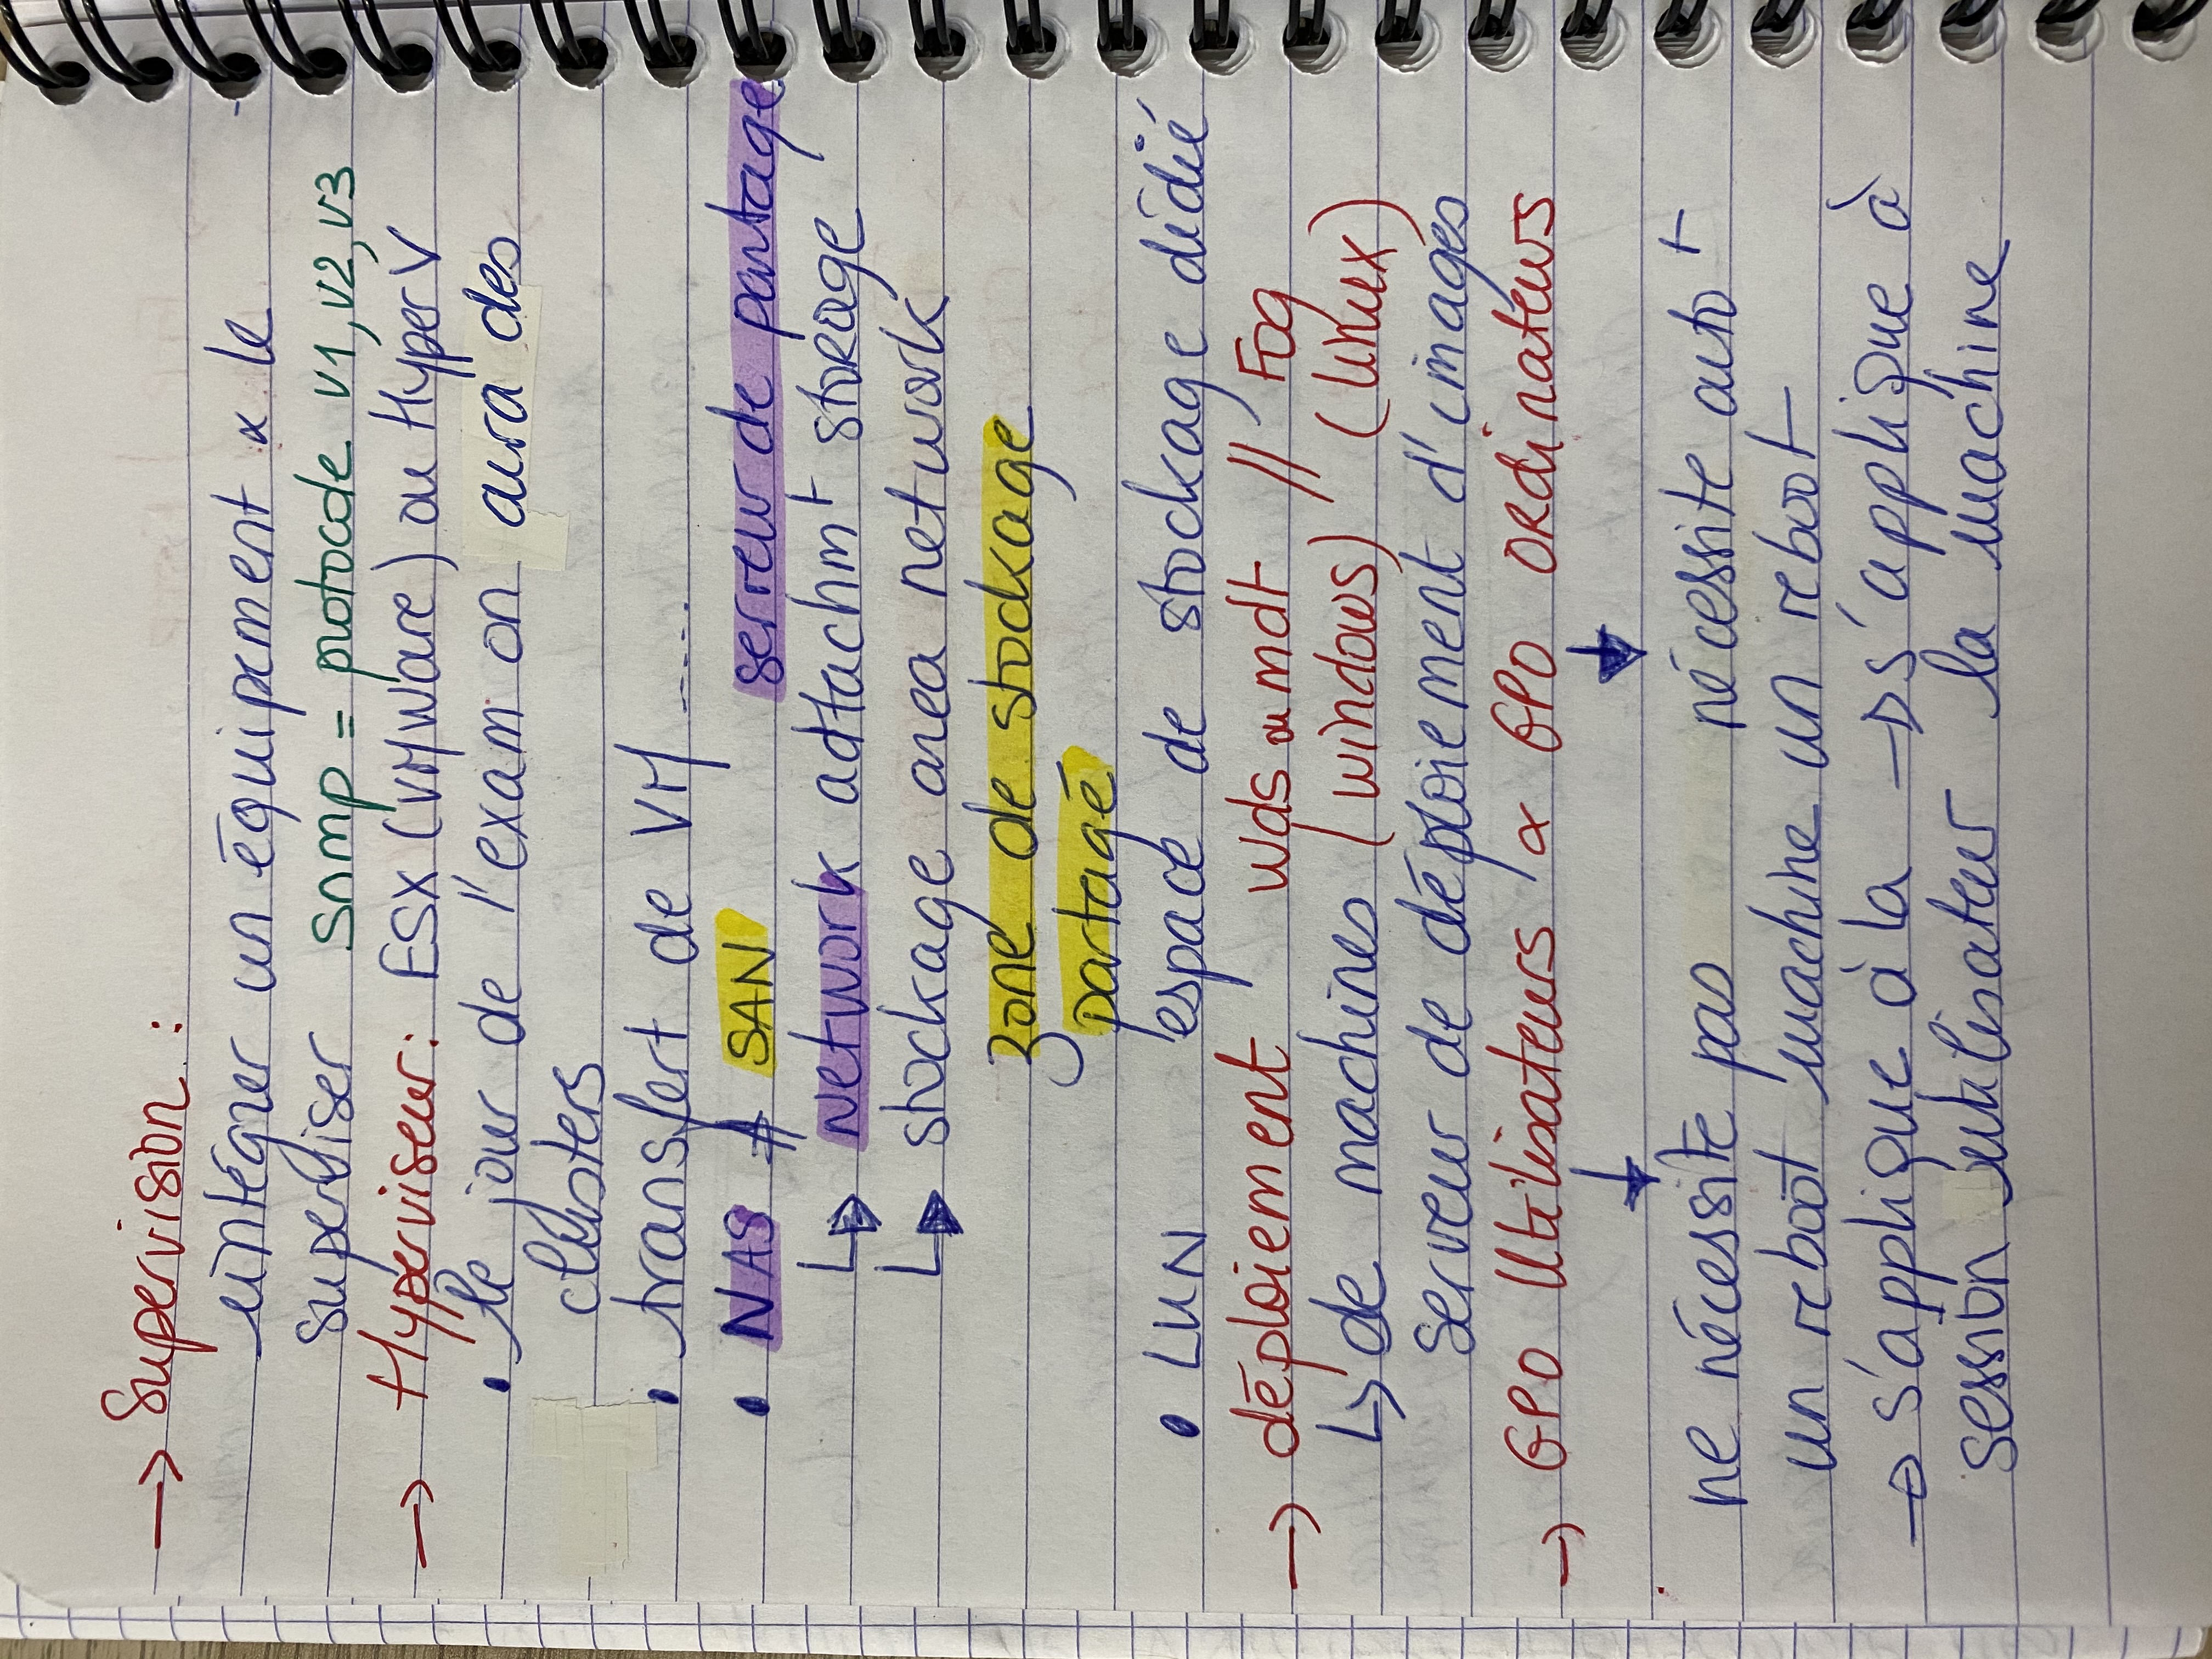 → Supervision :
intégrer un équipement & le
superviser snmp = protocole v1, v2, v3
→ Hyperviseur : ESX (VMWare) ou Hyper V
• le jour de l'exam on aura des
clusters
• transfert de VM .....
• NAS ≠ SAN serveur de partage
↳ Network adtachmt storage
↳ stockage area network
zone de stockage
partagé
• LUN espace de stockage dédié
→ déploiement wds ou mdt // Fog
↳ de machines (windows) (linux)
serveur de déploiement d'images
→ GPO Utilisateurs & GPO ordinateurs
↓ ↓
ne nécessite pas nécessite autot
un reboot machine un reboot
→ s'applique à la → s'applique à
session utilisateur la machine